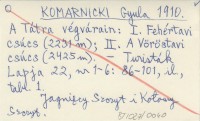 KOMARNICKI Gyula 1910.
A Tátra végvárain: I. Fehértavi
csúcs (2231 m); II. A Vöröstavi
csúcs (2425 m). Turisták
Lapja 22, nr 1-6: 86-101, il,
tabl 1.
Jagnięcy Szczyt i Kołowy
Szczyt.